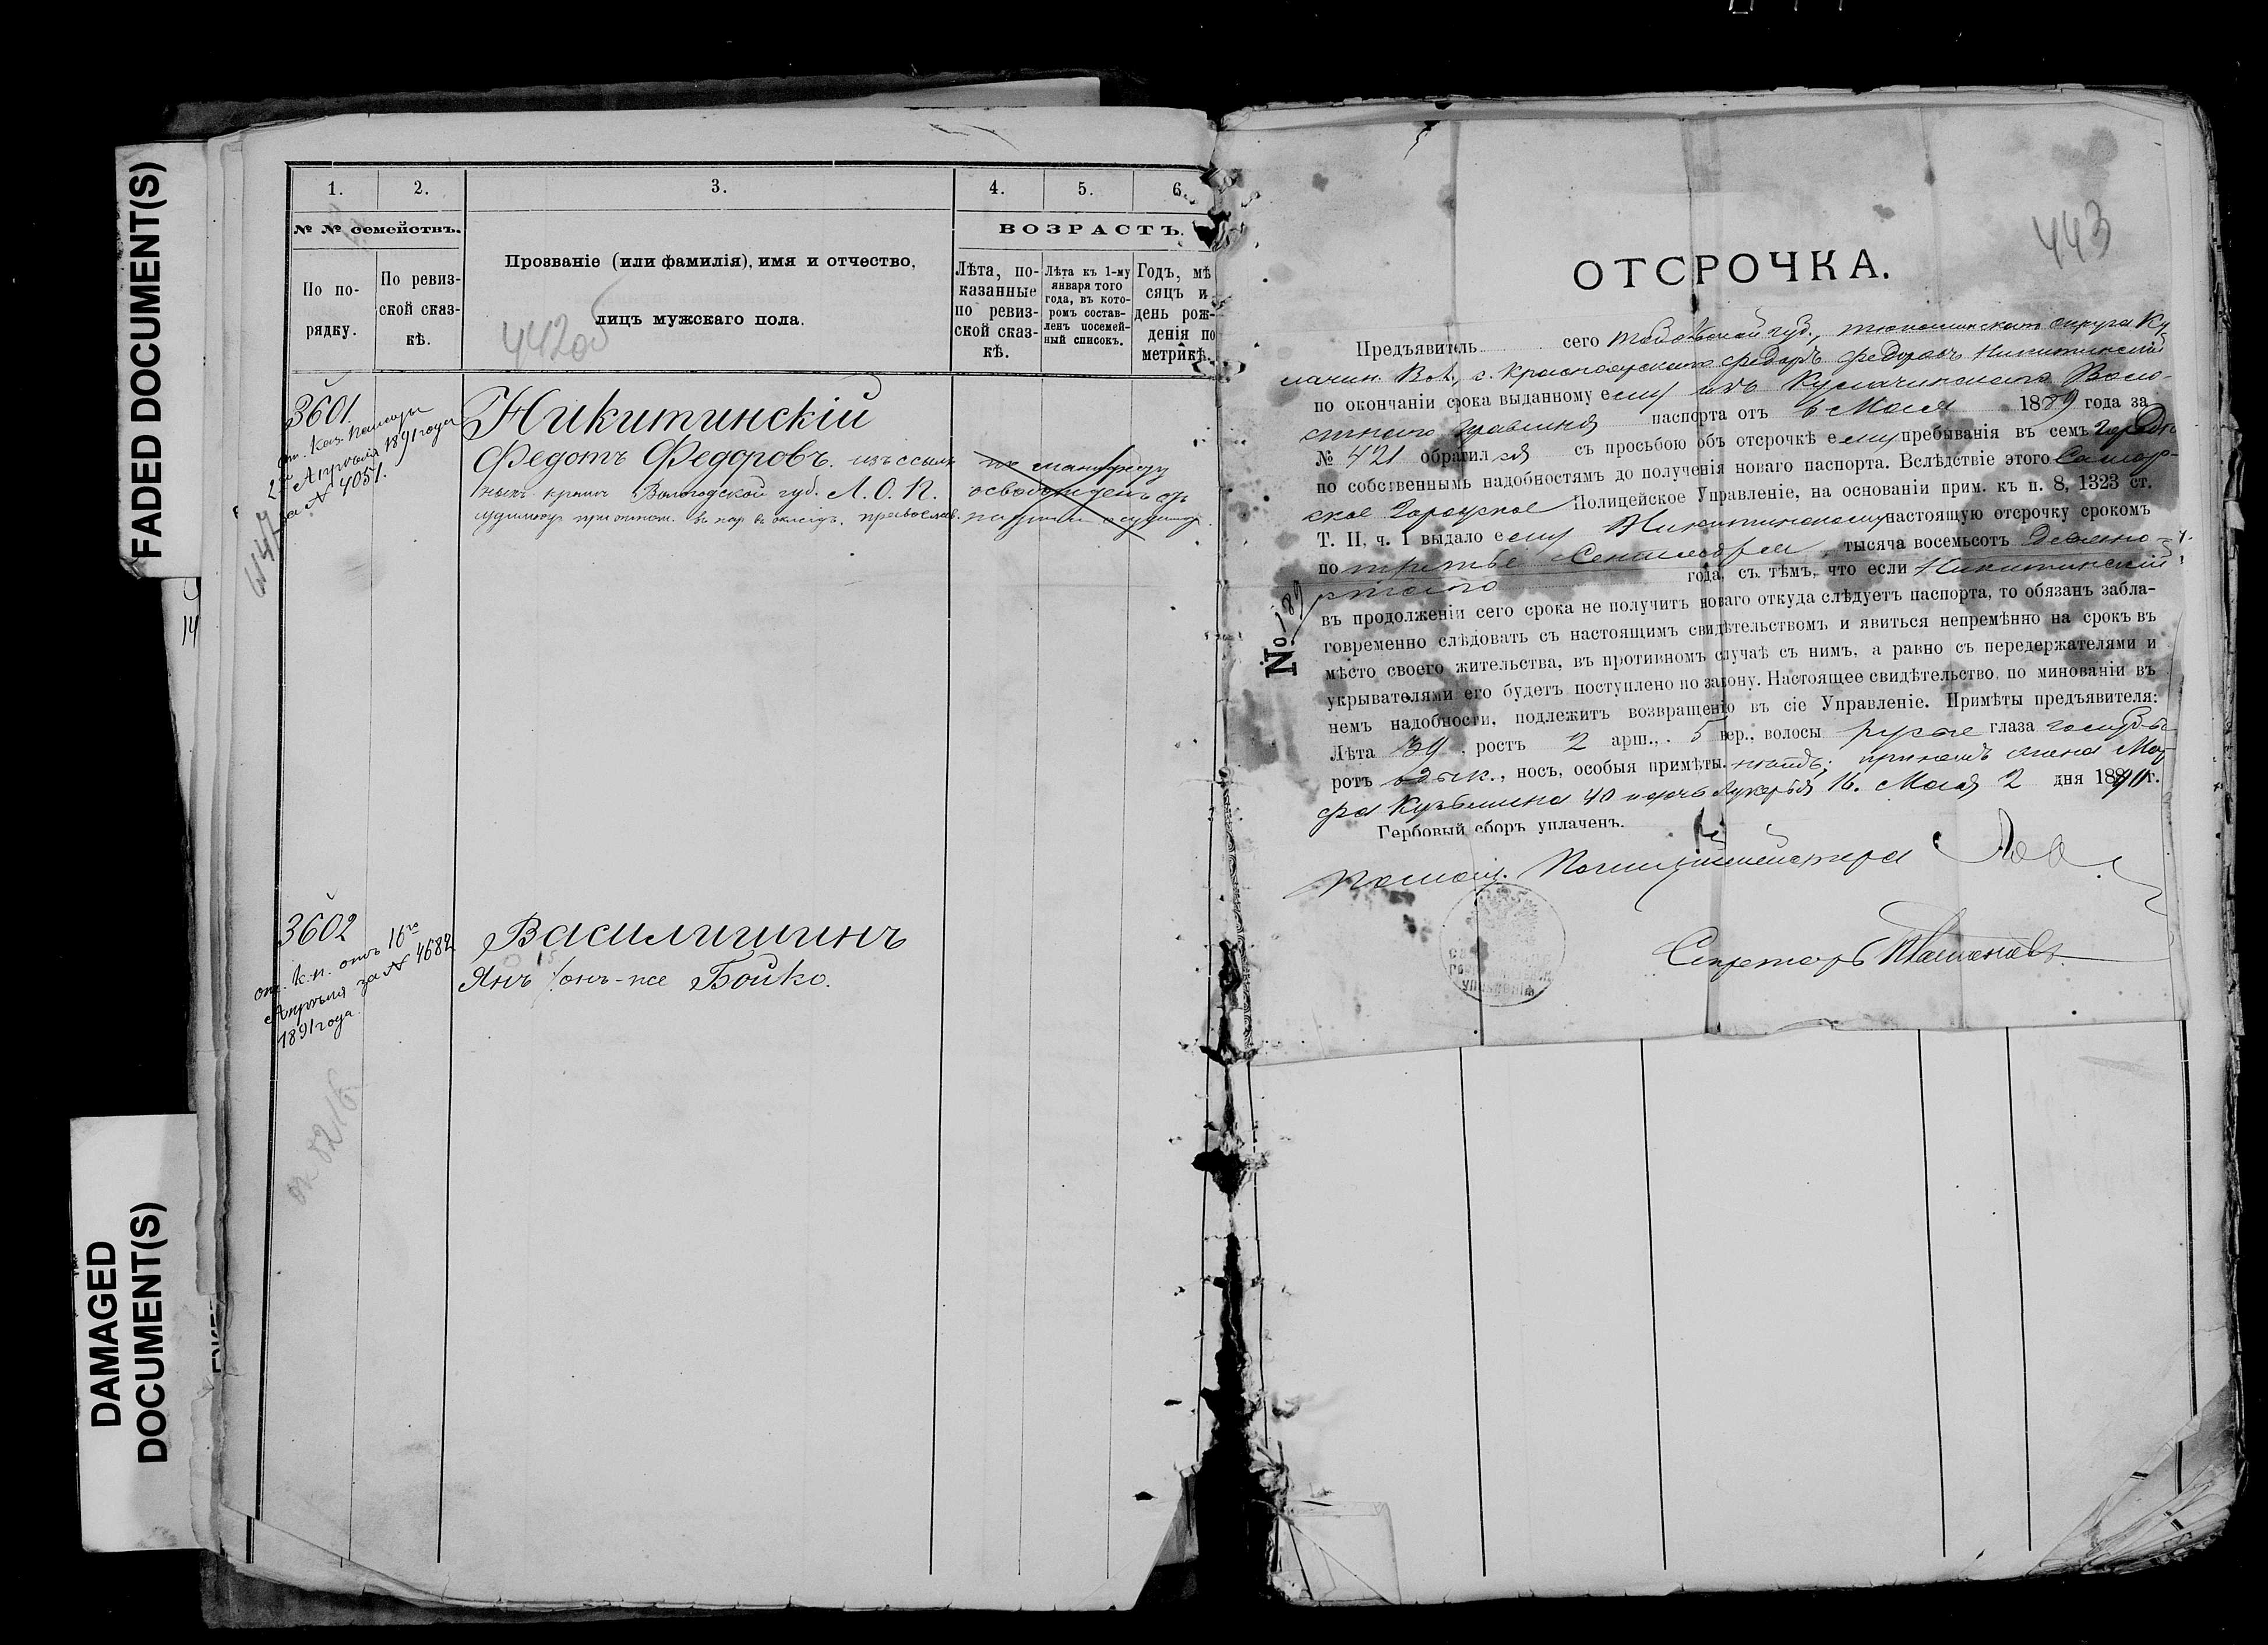 FADED DOCUMENT(S)
DAMAGED
DOCUMENT(S)
14
1. 2. 3. 4. 5. 6.
№ № семействъ.
ВОЗРАСТЪ.
По по-
рядку.
По ревиз-
ской сказ-
кѣ.
Прозваніе (или фамилія), имя и отчество,
лицъ мужскаго пола.
442об
Лѣта, по-
казанные
по ревиз-
ской сказ-
кѣ.
Лѣта къ 1-му
января того
года, въ кото-
ромъ состав-
ленъ посемей-
ный списокъ.
Годъ, мѣ
сяцъ и
день рож-
денія по
метрикѣ.
3601.
Каз. Палаты
Апрѣля 1891 года
за № 4051.
Никитинскій
Федотъ Федоровъ. изъ ссыль
ныхъ крест Вологодской губ. Л. О. П.
православ.
по манифесту
освобожденъ отъ
3602
от. к.п. отъ 16го
Апрѣля за № 4682
1891 года.
Василишинъ
Янъ онъ-же Бойко.
ок 8216
443
ОТСРОЧКА.
Предъявитель сего Тобольской губ., Тюкалинскаго округа Ку
лачин. Вол., с. Красноярскаго Федотъ Федоровъ Никитинскій
по окончаніи срока выданному ему изъ Кулачинскаго Воло-
стного Правленія паспорта отъ 6 Мая 1889 года за
№ 421 обратился съ просьбою объ отсрочкѣ ему пребыванія въ семъ городѣ
по собственнымъ надобностямъ до полученія новаго паспорта. Вслѣдствіе этого Самар-
ское Городское Полицейское Управленіе, на основаніи прим. къ п. 8, 1323 ст.
Т. II, ч. I выдало ему Никитинскому настоящую отсрочку срокомъ
по третье Сентября тысяча восемьсотъ девяно-
стого года, съ тѣмъ, что если Никитинскій
въ продолженіи сего срока не получитъ новаго откуда слѣдуетъ паспорта, то обязанъ забла-
говременно слѣдовать съ настоящимъ свидѣтельствомъ и явиться непремѣнно на срокъ въ
мѣсто своего жительства, въ противномъ случаѣ съ нимъ, а равно съ передержателями и
укрывателями его будетъ поступлено по закону. Настоящее свидѣтельство, по минованіи въ
немъ надобности, подлежитъ возвращенію въ сіе Управленіе. Примѣты предъявителя:
Лѣта 39, ростъ 2 арш., 5 вер., волосы русые глаза голубые
ротъ обык., носъ, особыя примѣты. при немъ жена Мар
фа Кузьмина 40 и дочь Лукерья 16. Мая 2 дня 1890 г.
Гербовый сборъ уплаченъ.
№
Помощ. Полиціймейстера
Секретарь